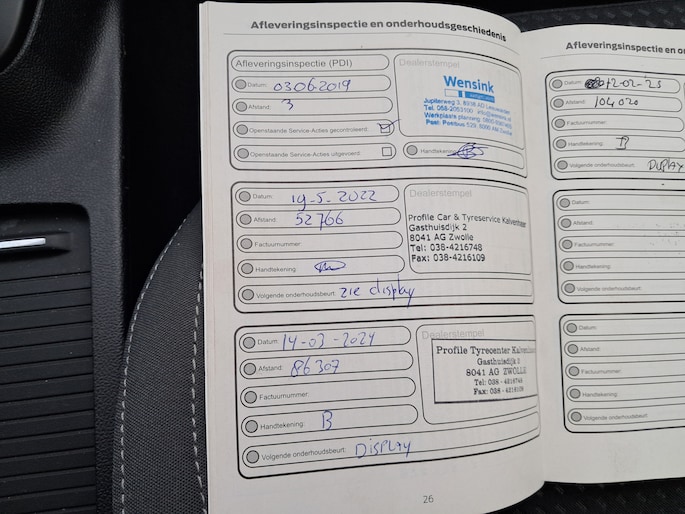 Afleveringsinspectie en onderhoudsgeschiedenis
Afleveringsinspectie (PDI)
Datum: 03 06-2019
Afstand: 3
Openstaande Service-Acties gecontroleerd:
Openstaande Service-Acties uitgevoerd:
Dealerstempel
Wensink
Jupiterweg 3, 8938 AD Leeuwarden
Handtekening:
Datum: 19-5-2022
Afstand: 52766
Factuurnummer:
Handtekening:
Volgende onderhoudsbeurt: zie display
Dealerstempel
Profile Car & Tyreservice Kalvenhaer
Gasthuisdijk 2
8041 AG Zwolle
Tel: 038-4216748
Fax: 038-4216109
Datum: 14-03-2024
Afstand: 86307
Factuurnummer:
Handtekening: B
Volgende onderhoudsbeurt: DISPLAY
Dealerstempel
Profile Tyrecenter
Gasthuisdijk 2
8041 AG ZWOLLE
Tel: 038 - 4216748
Fax: 038 - 4216109
26
Afleveringsinspectie en
Datum: 12-02-25
Afstand: 104020
Factuurnummer:
Handtekening: B
Volgende onderhoudsbeurt: DISPLAY
Datum:
Afstand:
Factuurnummer:
Handtekening:
Volgende onderhoudsbeurt:
Datum:
Afstand:
Factuurnummer:
Handtekening:
Volgende onderhoudsbeurt: